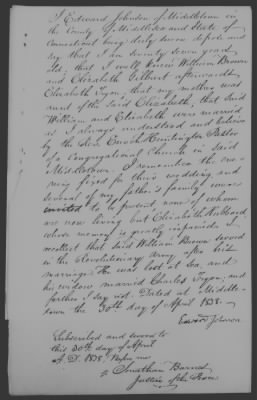 I Edward Johnson of Middletown in
the County of Middlesex and State of
Connecticut being duly sworn depose and
say that I am seventy seven years
old; that I well knew William Brown
and Elizabeth Gilbert afterwards
Elizabeth Tryon; that my mother was
aunt of the said Elizabeth, that said
William and Elizabeth were married
as I always understood and believe
by the Rev. Enoch Huntington Pastor
of a Congregational Church in said
Middletown. I remember the eve
ning fixed for their wedding, and
several of my father's family were
invited to be present none of whom
are now living but Elizabeth Hubbard,
whose memory is greatly impaired. I
recollect that said William Brown served
in the Revolutionary Army after his
marriage. He was lost at Sea and
his widow married Charles Tryon, and
further I say not. Dated at Middle-
town the 30th day of April 1838.
Edward Johnson
Subscribed and sworn to
this 30th day of April
A.D. 1838. Before me
Jonathan Barnes
Justice of the Peace